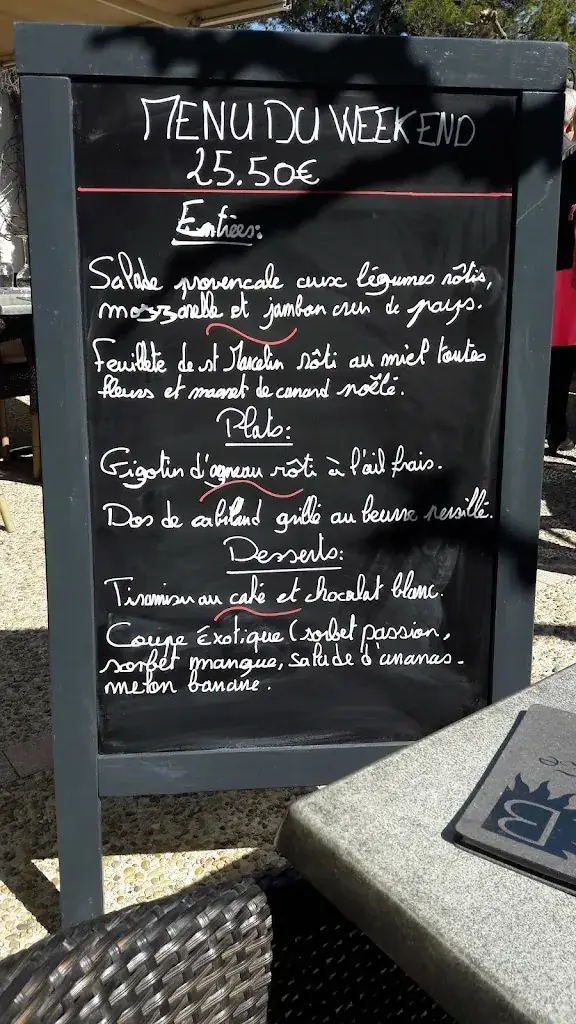 MENU DU WEEKEND
25.50€
Entrées:
Salade provencale aux légumes rôtis,
mozzarelle et jambon cru de pays.
Feuilleté de st Marcelin rôti au miel toutes
fleurs et magret de canard poêlé.
Plats:
Gigotin d'agneau rôti à l'ail frais.
Dos de cabillaud grillé au beurre persillé.
Desserts:
Tiramisu au café et chocolat blanc.
Coupe Éxotique (sorbet passion,
sorbet mangue, salade d'ananas-
melon banane.
B